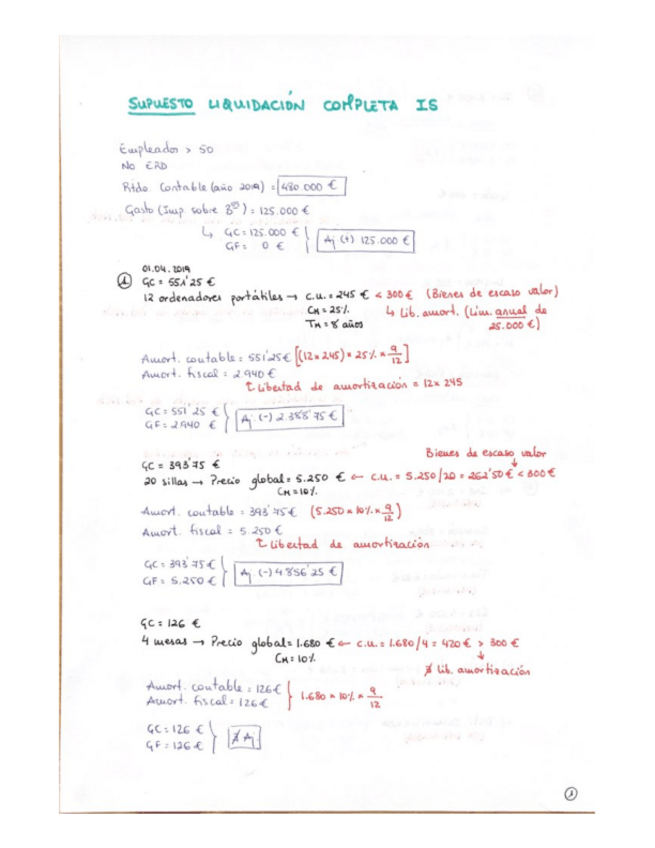 SUPUESTO LIQUIDACIÓN COMPLETA IS
Empleador > 50
NO ERD
Rtdo. Contable (año 2019) = 480.000 €
Gasto (Imp. sobre Bº) = 125.000 €
↳ GC = 125.000 €
GF = 0 €
Aj (+) 125.000 €
01.04.2019
① GC = 551'25 €
12 ordenadores portátiles → c.u. = 245 € < 300 € (Bienes de escaso valor)
CM = 25%
↳ Lib. amort. (Lím. anual de
TM = 8 años
25.000 €)
Amort. contable = 551'25 € [(12 x 245) x 25% x 9/12]
Amort. fiscal = 2.940 €
↑ Libertad de amortización = 12 x 245
GC = 551'25 €
GF = 2.940 €
Aj. (-) 2.388'75 €
Bienes de escaso valor
GC = 393'75 €
20 sillas → Precio global = 5.250 € ← c.u. = 5.250/20 = 262'50 € < 300 €
CM = 10%
Amort. contable = 393'75 € (5.250 x 10% x 9/12)
Amort. fiscal = 5.250 €
↑ Libertad de amortización
GC = 393'75 €
GF = 5.250 €
Aj (-) 4.856'25 €
GC = 126 €
4 mesas → Precio global = 1.680 € ← c.u. = 1.680/4 = 420 € > 300 €
CM = 10%
↓
∄ lib. amortización
Amort. contable = 126 €
Amort. fiscal = 126 €
1.680 x 10% x 9/12
GC = 126 €
GF = 126 €
∄ Aj
①